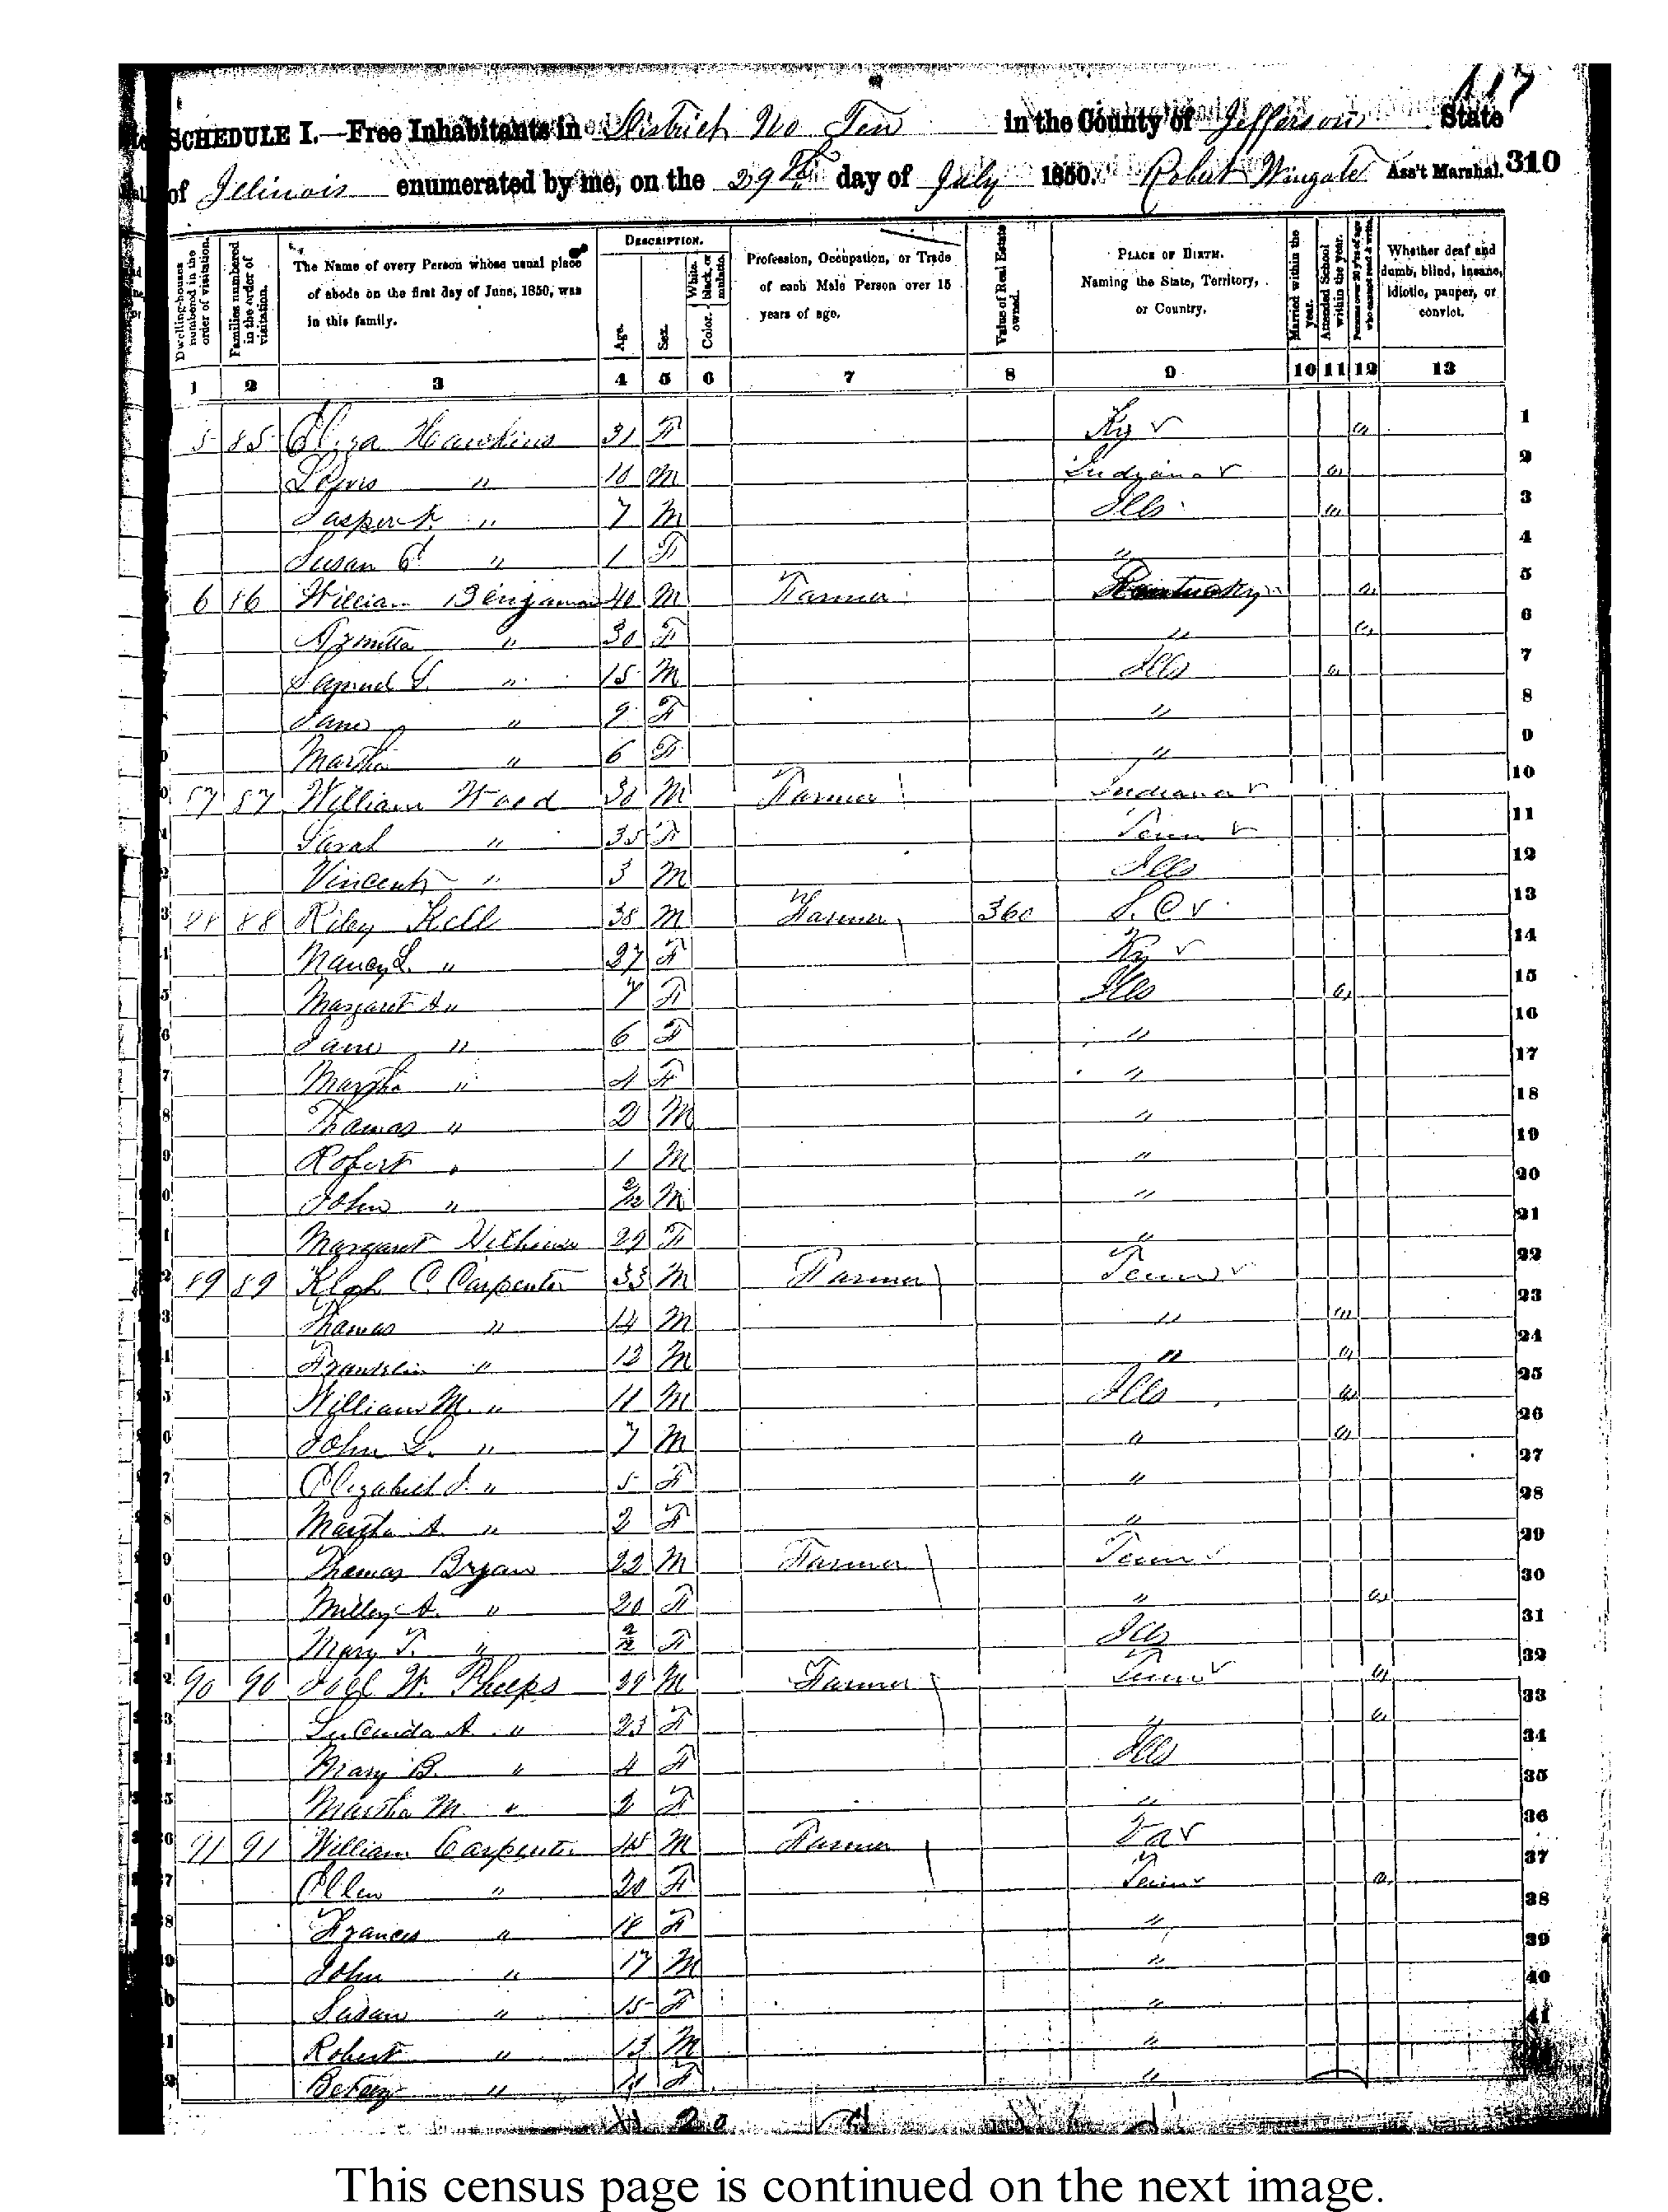 117
SCHEDULE I.—Free Inhabitants in District No Ten in the County of Jefferson State
of Illinois enumerated by me, on the 29th day of July 1850. Robert Wingate Ass't Marshal. 310
Dwelling-houses numbered in the order of visitation.
Families numbered in the order of visitation.
The Name of every Person whose usual place of abode on the first day of June, 1850, was in this family.
DESCRIPTION.
Age.
Sex.
Color. White, black, or mulatto.
Profession, Occupation, or Trade of each Male Person over 15 years of age.
Value of Real Estate owned.
PLACE OF BIRTH. Naming the State, Territory, or Country.
Married within the year.
Attended School within the year.
Persons over 20 y'rs of age who cannot read & write.
Whether deaf and dumb, blind, insane, idiotic, pauper, or convict.
1 2 3 4 5 6 7 8 9 10 11 12 13
5 85 Eliza Hawkins 31 F Ky 1
Lewis " 10 M Indiana 2
Jasper " 7 M Ills 3
Susan E " 1 F " 4
6 86 William Benjamin 40 M Farmer Kentucky 5
" 30 F " 6
Samuel L. " 15 M Ills 7
Jane " 9 F " 8
Martha " 6 F " 9
87 87 William Wood 30 M Farmer Indiana 10
Sarah " 35 F Tenn 11
Vincent " 3 M Ills 12
88 88 Riley Kell 38 M Farmer 360 S. C 13
Nancy L. " 27 F Ky 14
Margaret A " 7 F Ills 15
Jane " 6 F " 16
Martha " 4 F " 17
Thomas " 2 M " 18
Robert " 1 M " 19
John " 2/12 M " 20
Margaret 29 F " 21
89 89 C. Carpenter 33 M Farmer Tenn 22
Thomas " 14 M " 23
Franklin " 12 M " 24
William M. " 11 M Ills 25
John L. " 7 M " 26
Elizabeth J. " 5 F " 27
Martha A. " 2 F " 28
Thomas Bryan 22 M Farmer Tenn 29
Milley A. " 20 F " 30
Mary T. " 2/12 F Ills 31
90 90 Joel W. Phelps 29 M Farmer Tenn 32
Lucinda A. " 23 F " 33
Mary B. " 4 F Ills 34
Martha M. " 2 F " 35
91 91 William Carpenter 45 M Farmer Va 36
Ellen " 20 F Tenn 37
Frances " 18 F " 38
John " 17 M " 39
Susan " 15 F " 40
Robert " 13 M " 41
Betsey " 11 F "
This census page is continued on the next image.